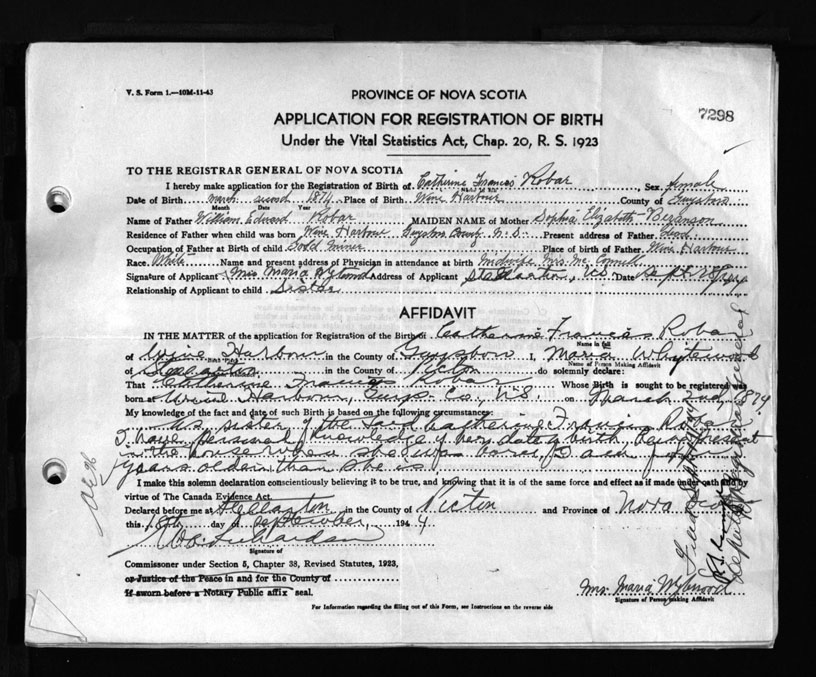 V. S. Form 1.—10M-11-43
PROVINCE OF NOVA SCOTIA
7298
APPLICATION FOR REGISTRATION OF BIRTH
Under the Vital Statistics Act, Chap. 20, R. S. 1923
TO THE REGISTRAR GENERAL OF NOVA SCOTIA
I hereby make application for the Registration of Birth of Catherine Francis Robar, Sex female
Name in full
Date of Birth March second 1874 Place of Birth Wine Harbour County of Guysboro
Month Date Year
Name of Father William Edward Robar MAIDEN NAME of Mother Sophia Elizabeth
Residence of Father when child was born Wine Harbour Guysboro County N.S. Present address of Father Dead
Occupation of Father at Birth of child Gold Miner Place of birth of Father Wine Harbour
Race White Name and present address of Physician in attendance at birth Midwife Mrs. McConnell
Signature of Applicant Mrs Maria Address of Applicant Stellarton, N.S. Date Sept
Relationship of Applicant to child Sister
AFFIDAVIT
IN THE MATTER of the application for Registration of the Birth of Catherine Francis Robar
Name in full
of Wine Harbour in the County of Guysboro I, Maria
Name of Person Making Affidavit
of Stellarton in the County of Pictou do solemnly declare:
That Catherine Francis Robar Whose Birth is sought to be registered was
born at Wine Harbour, Guys. Co., N.S. on March 2nd, 1874
My knowledge of the fact and date of such Birth is based on the following circumstances:
sister of the said Catherine Francis Robar
I have personal knowledge of her date of birth, being present
in the house when she was born, I am
years older than she is
I make this solemn declaration conscientiously believing it to be true, and knowing that it is of the same force and effect as if made under oath and by
virtue of The Canada Evidence Act.
Declared before me at Stellarton in the County of Pictou and Province of Nova Scotia
this 18th day of September, 1944
Richardson
Signature of
Commissoner under Section 5, Chapter 38, Revised Statutes, 1923,
or Justice of the Peace in and for the County of
If sworn before a Notary Public affix seal.
Mrs. Maria
Signature of Person Making Affidavit
For Information regarding the filling out of this Form, see Instructions on the reverse side
Deputy Registrar General